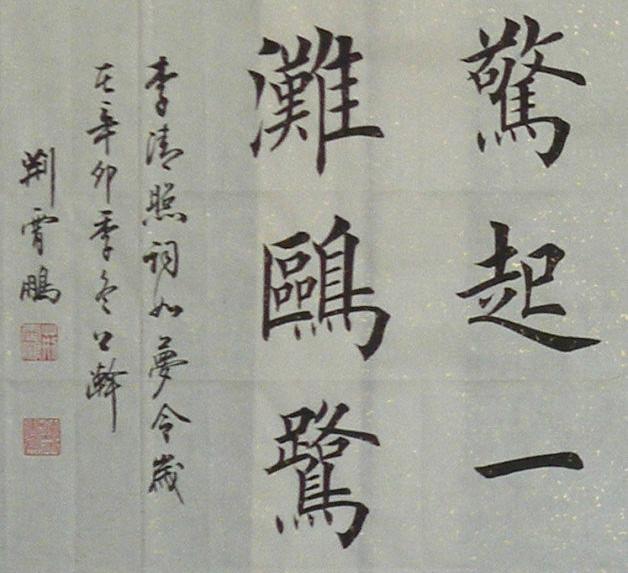 驚起一
灘鷗鷺
李清照詞如夢令歲
在辛卯季冬
荆霄鵬